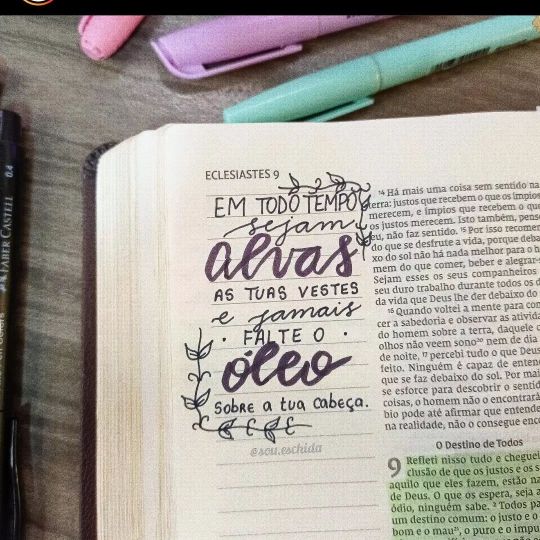 ECLESIASTES 9
EM TODO TEMPO
sejam
alvas
AS TUAS VESTES
e jamais
· FALTE O ·
óleo
SOBRE A TUA CABEÇA.
@sou.eschida
14 Há mais uma coisa sem sentido na
terra: justos que recebem o que os ímpios
merecem, e ímpios que recebem o que
os justos merecem. Isto também, penso
eu, não faz sentido. 15 Por isso recomen
do que se desfrute a vida, porque deba
xo do sol não há nada melhor para o ho
mem do que comer, beber e alegrar-s
Sejam esses os seus companheiros
seu duro trabalho durante todos os d
da vida que Deus lhe der debaixo do
16 Quando voltei a mente para con
cer a sabedoria e observar as ativida
do homem sobre a terra, daquele c
olhos não veem sono20 nem de dia
de noite, 17 percebi tudo o que Deus
feito. Ninguém é capaz de enten
que se faz debaixo do sol. Por mai
se esforce para descobrir o sentid
coisas, o homem não o encontrará
bio pode até afirmar que entende
na realidade, não o consegue enco
O Destino de Todos
9 Refleti nisso tudo e cheguei
clusão de que os justos e os s
aquilo que eles fazem, estão na
de Deus. O que os espera, seja a
ódio, ninguém sabe. 2 Todos pa
um destino comum: o justo e o
bom e o mau, o puro e o impu
FABER CASTELL
0.4